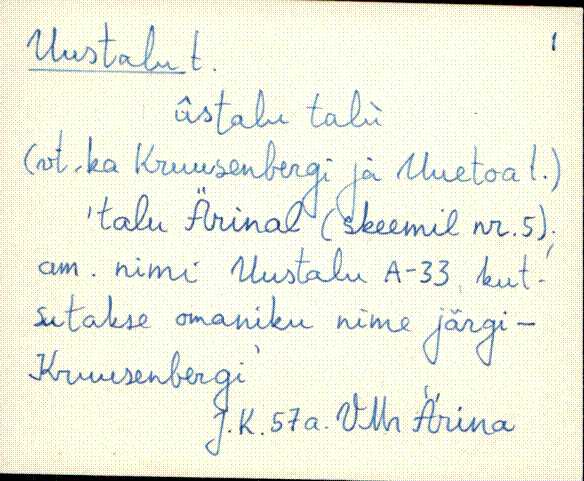 1
Uustalu t.
ûstalu talù
(vt. ka Kruusenbergi ja Uuetoa t.)
'talu Ärinal (skeemil nr. 5);
am. nimi Uustalu A-33, kut-
sutakse omaniku nime järgi –
Kruusenbergi'
J.K. 57a. VMr Ärina